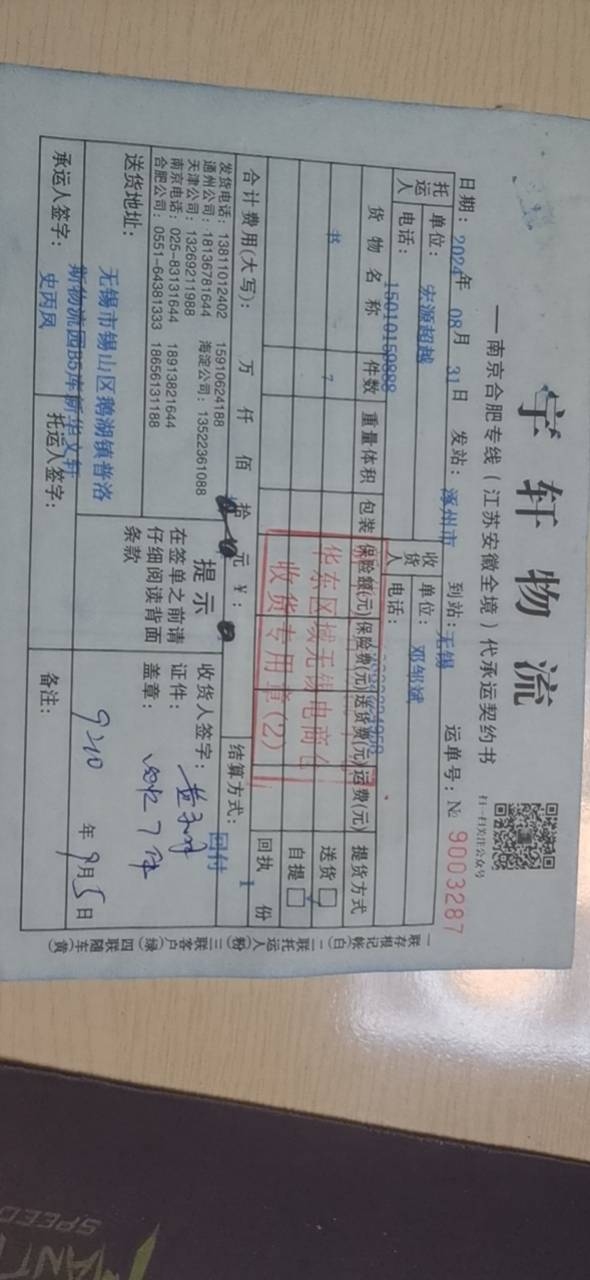 宇轩物流
扫一扫关注公众号
——南京合肥专线（江苏安徽全境）代承运契约书
日期：2024年 08月 31日 发站：涿州市 到站：无锡 运单号：№ 9003287
托运人 单位：宏源超越 收货人 单位：邓邹斌
电话：15010150888 电话：
货物名称 件数 重量体积 包装 保险额(元) 保险费(元) 送货费(元) 运费(元) 提货方式
书 7 送货
自提
华东区域无锡电商仓
收货专用章(2)
回执 1 份
合计费用(大写)： 万 仟 佰 拾 元 ¥： 结算方式：回付
发货电话：13811012402 15910624188
通州公司：18136781644 海淀公司：13522361088
天津公司：13269211988
南京电话：025-83131644 18913821644
合肥公司：0551-64381333 18656131188
提示
在签单之前请
仔细阅读背面
条款
收货人签字：
证件：
盖章：
送货地址：无锡市锡山区鹅湖镇普洛
斯物流园B5库新华文轩
年9月5日
承运人签字：史丙凤 托运人签字： 备注：
一联存根记帐(白) 二联托运人(粉) 三联客户(绿) 四联随车(黄)
SPEED